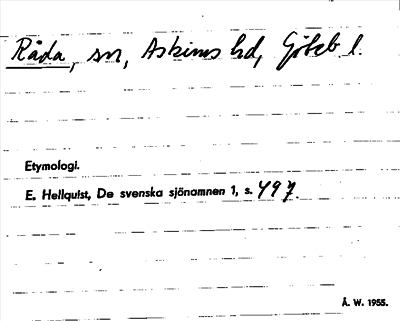 Råda, sn, Askims hd, Göteb. l.
Etymologi.
E. Hellquist, De svenska sjönamnen 1, s. 497.
Å. W. 1955.